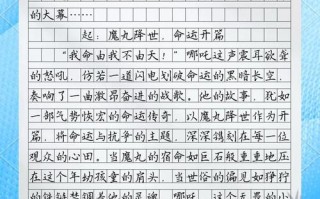 的大幕……
起：魔丸降世，命运开篇
“我命由我不由天！”哪吒这声震耳欲聋
的怒吼，仿若一道闪电划破命运的黑暗长空，
奏响了一曲激昂奋进的战歌。他的故事，犹如
一部气势恢宏的命运传奇，以魔丸降世作为开
篇，将命运与抗争的主题，深深镌刻在每一位
观众的心田。当魔丸的宿命如巨石般重重地压
在这个年幼孩童的肩头，当世俗的偏见如铮铮